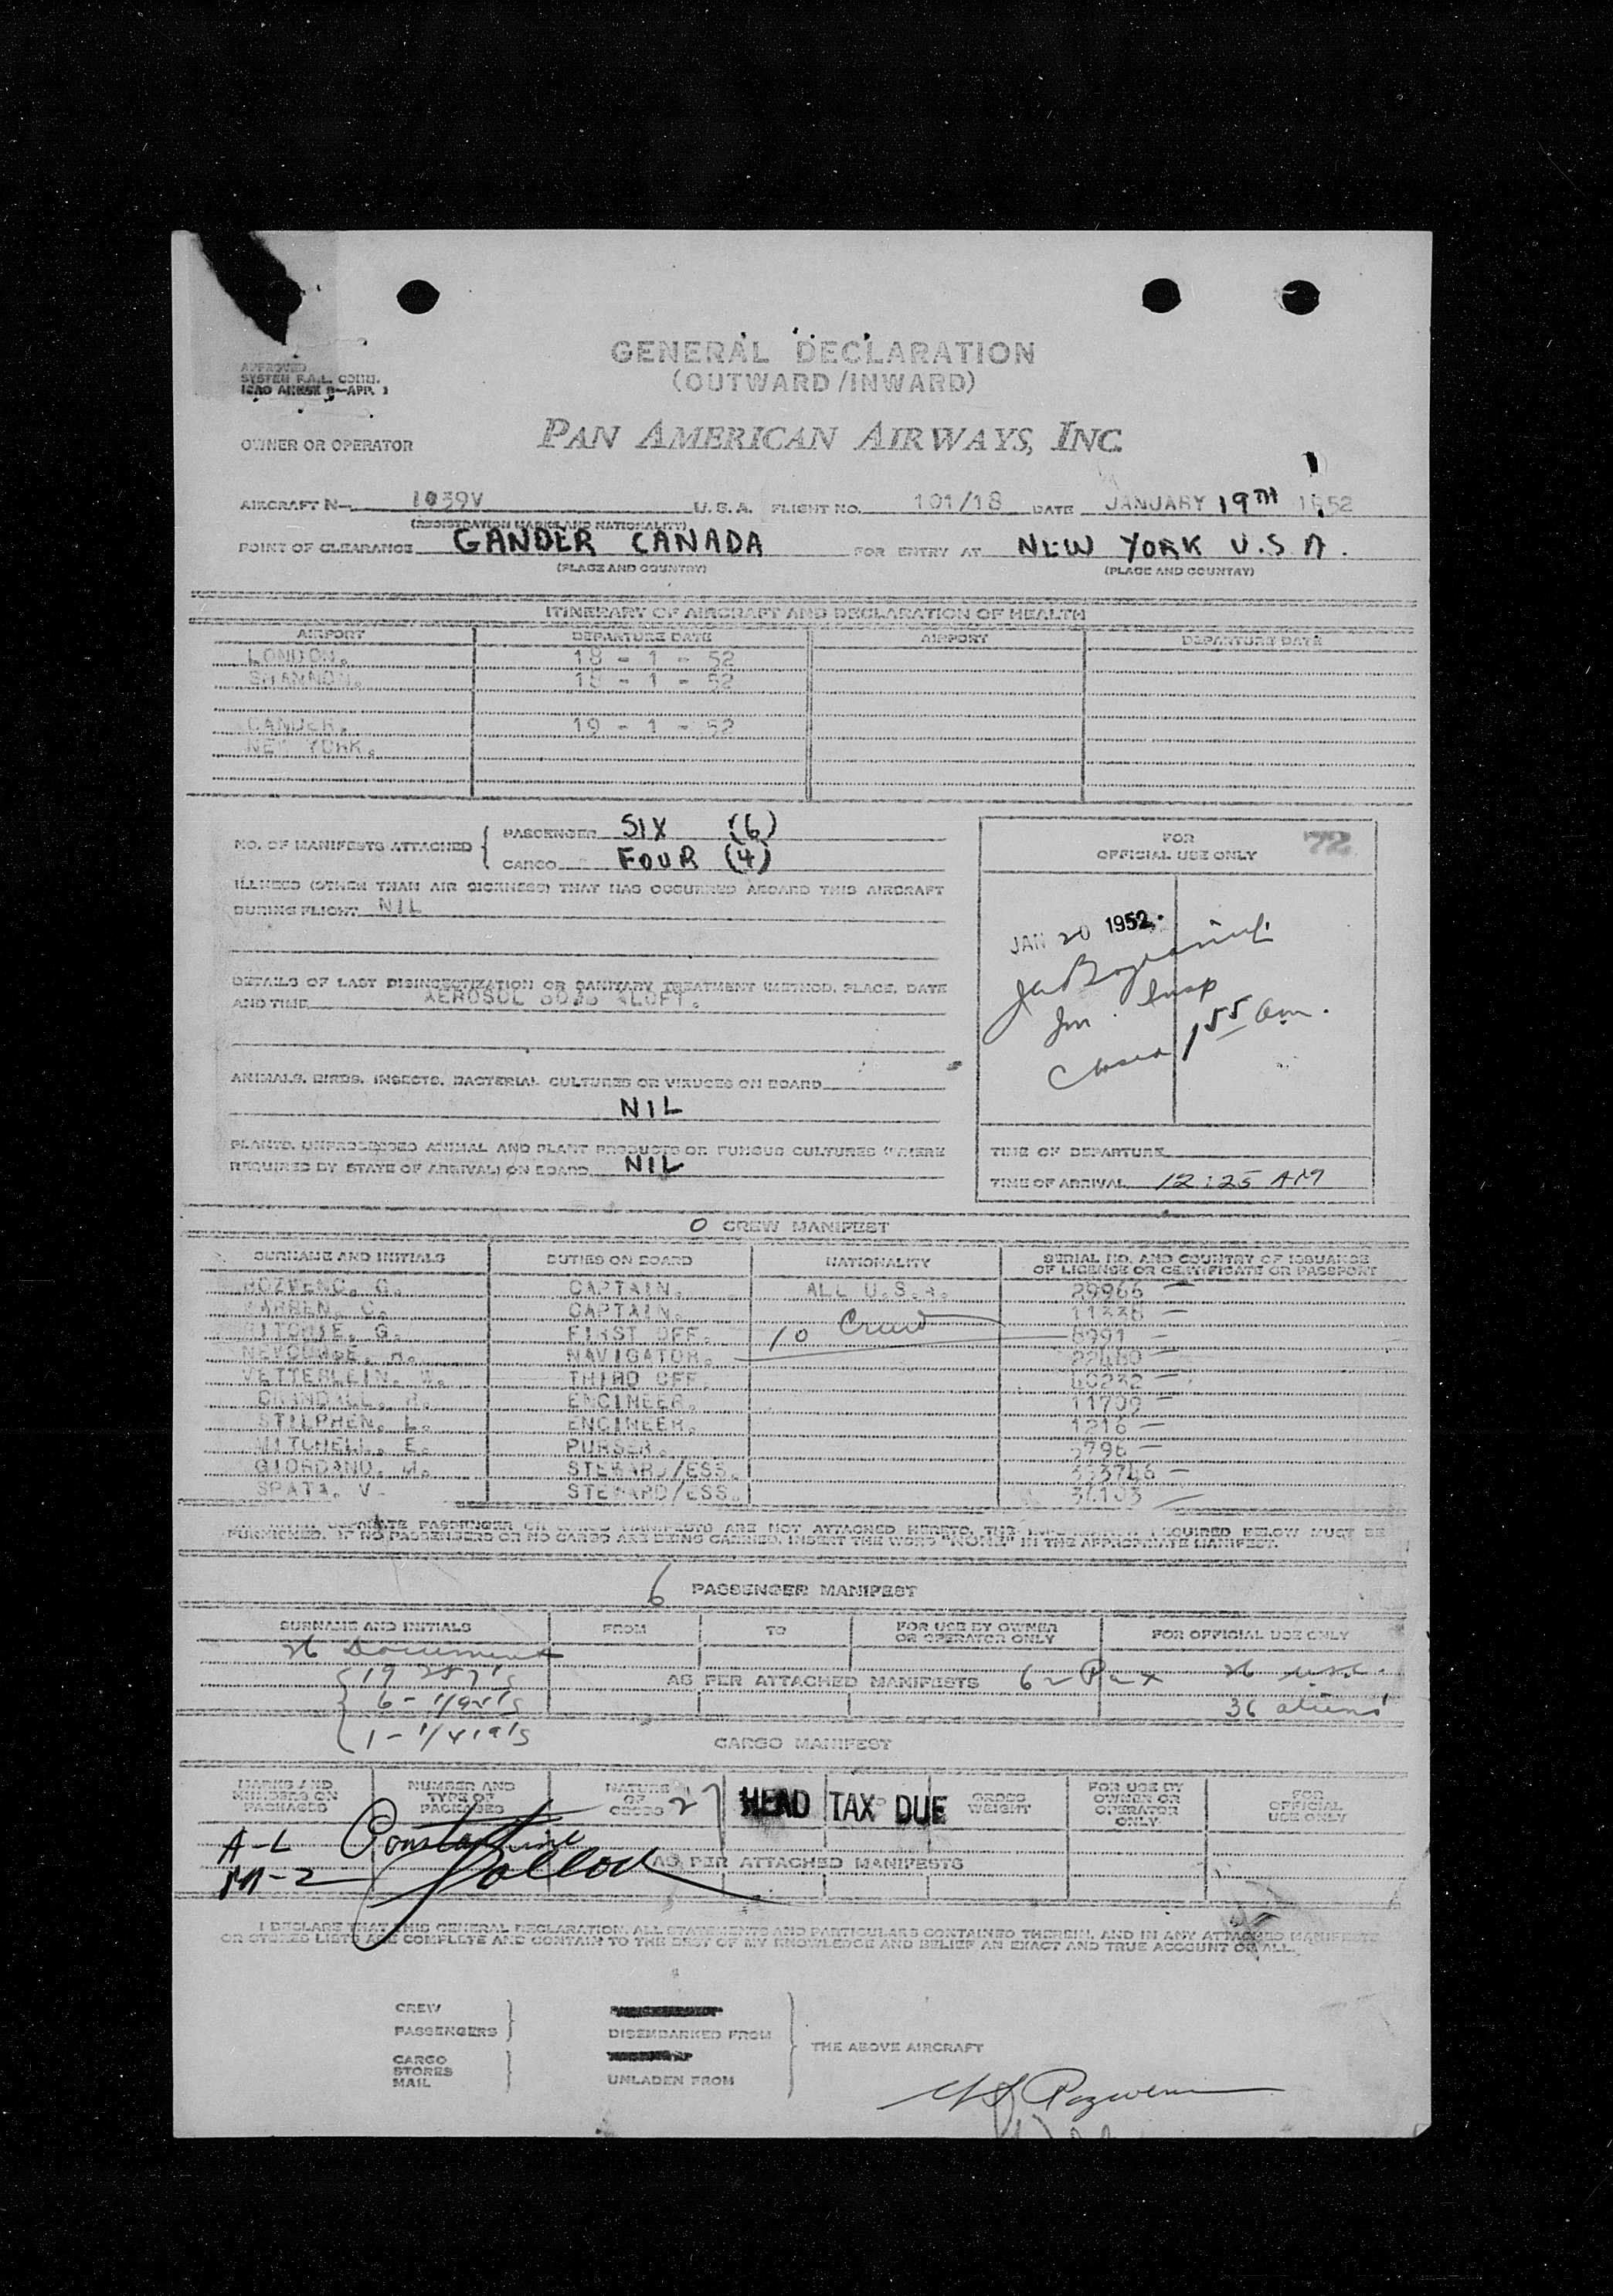 GENERAL DECLARATION
(OUTWARD/INWARD)
APPROVED
SYSTEM F.A.L. COMM.
ICAO ANNEX 9—APP. 1
OWNER OR OPERATOR PAN AMERICAN AIRWAYS, INC.
AIRCRAFT N— 1039V U. S. A. FLIGHT NO. 101/18 DATE JANUARY 19TH 1952
(REGISTRATION MARKS AND NATIONALITY)
POINT OF CLEARANCE GANDER CANADA FOR ENTRY AT NEW YORK U.S.A.
(PLACE AND COUNTRY) (PLACE AND COUNTRY)
ITINERARY OF AIRCRAFT AND DECLARATION OF HEALTH
AIRPORT DEPARTURE DATE AIRPORT DEPARTURE DATE
LONDON. 18 - 1 - 52
SHANNON. 18 - 1 - 52
GANDER. 19 - 1 - 52
NEW YORK.
NO. OF MANIFESTS ATTACHED { PASSENGER SIX (6)
CARGO FOUR (4)
FOR
OFFICIAL USE ONLY
72
ILLNESS (OTHER THAN AIR SICKNESS) THAT HAS OCCURRED ABOARD THIS AIRCRAFT
DURING FLIGHT NIL
JAN 20 1952
Im. Insp
Closed 1 55 am.
DETAILS OF LAST DISINSECTIZATION OR SANITARY TREATMENT (METHOD, PLACE, DATE
AND TIME AEROSOL BOMB ALOFT.
ANIMALS, BIRDS, INSECTS, BACTERIAL CULTURES OR VIRUSES ON BOARD
NIL
PLANTS, UNPROCESSED ANIMAL AND PLANT PRODUCTS OR FUNGUS CULTURES (WHERE
REQUIRED BY STATE OF ARRIVAL) ON BOARD NIL
TIME OF DEPARTURE
TIME OF ARRIVAL 12:25 AM
0 CREW MANIFEST
SURNAME AND INITIALS DUTIES ON BOARD NATIONALITY SERIAL NO. AND COUNTRY OF ISSUANCE
OF LICENSE OR CERTIFICATE OR PASSPORT
G. CAPTAIN. ALL U.S.A. 29966
WARREN. C. CAPTAIN. 11336
RITCHIE. G. FIRST OFF. 10 Crew 8991
NAVIGATOR. 22480
VETTERLEIN. W. THIRD OFF. 40232
CRANDALL. R. ENGINEER. 11709
STILPHEN. L. ENGINEER. 1216
MITCHELL. E. PURSER. 3796
GIORDANO. M. STEWARD/ESS. 353746
SPATA. V. STEWARD/ESS. 36103
SEPARATE PASSENGER OR CARGO MANIFESTS ARE NOT ATTACHED HERETO, THE INFORMATION REQUIRED BELOW MUST BE
FURNISHED. IF NO PASSENGERS OR NO CARGO ARE BEING CARRIED, INSERT THE WORD "NONE" IN THE APPROPRIATE MANIFEST.
6 PASSENGER MANIFEST
SURNAME AND INITIALS FROM TO FOR USE BY OWNER
OR OPERATOR ONLY FOR OFFICIAL USE ONLY
26 Documents
19 257's AS PER ATTACHED MANIFESTS 62 Pax 26 usc
36 aliens
CARGO MANIFEST
MARKS AND
NUMBERS ON
PACKAGES NUMBER AND
TYPE OF
PACKAGES NATURE
OF
GOODS 27 HEAD TAX DUE GROSS
WEIGHT FOR USE BY
OWNER OR
OPERATOR
ONLY FOR
OFFICIAL
USE ONLY
A-L Constantine
M-2 Pollock AS PER ATTACHED MANIFESTS
I DECLARE THAT THIS GENERAL DECLARATION, ALL STATEMENTS AND PARTICULARS CONTAINED THEREIN, AND IN ANY ATTACHED MANIFESTS
OR STORES LISTS ARE COMPLETE AND CONTAIN TO THE BEST OF MY KNOWLEDGE AND BELIEF AN EXACT AND TRUE ACCOUNT OF ALL.
CREW
PASSENGERS } DISEMBARKED FROM
THE ABOVE AIRCRAFT
CARGO
STORES
MAIL } UNLADEN FROM